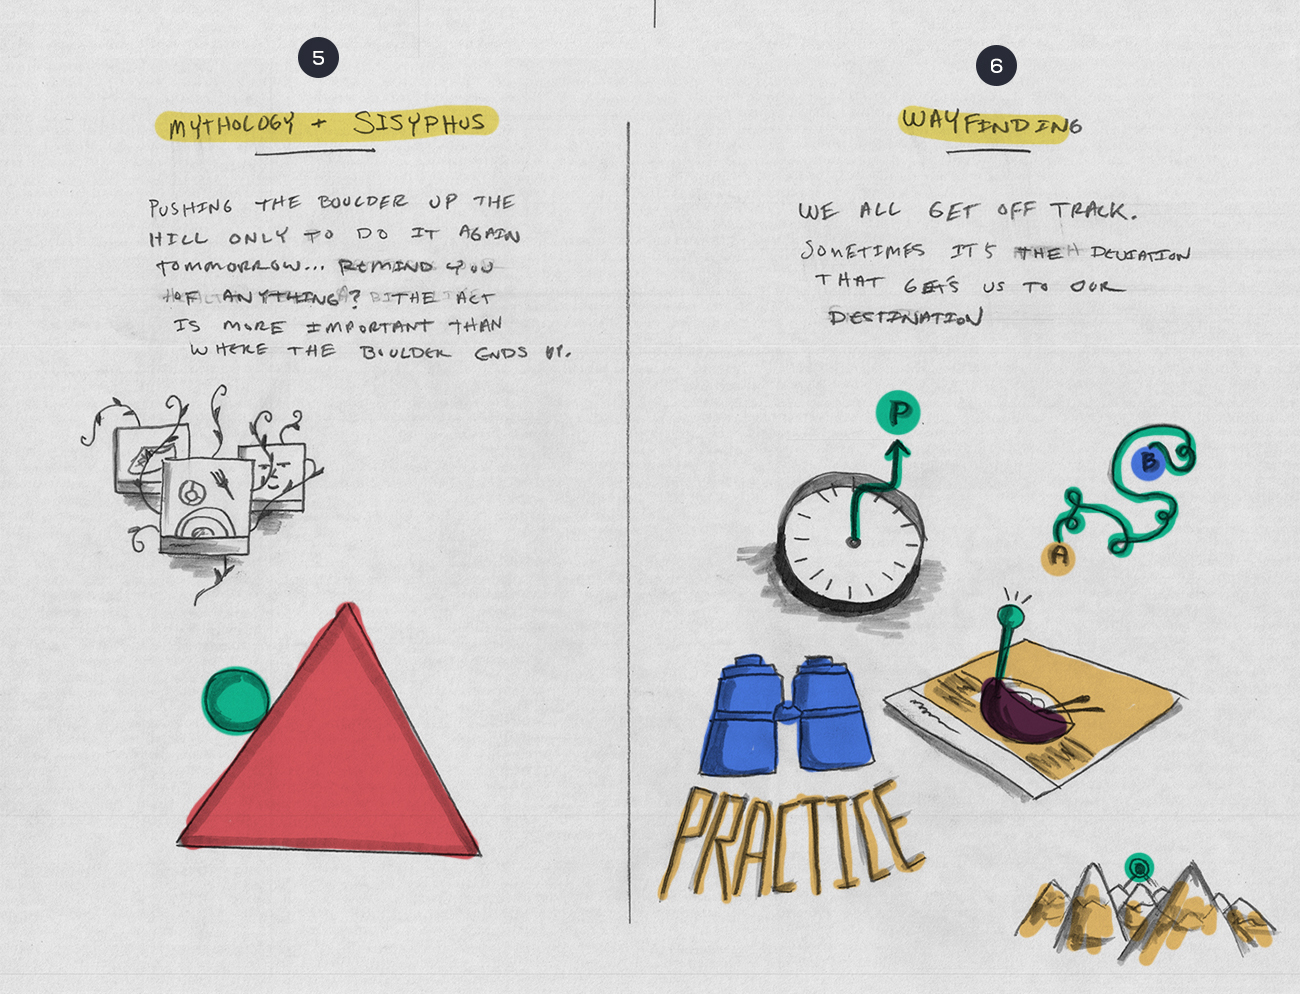 5
MYTHOLOGY + SISYPHUS
PUSHING THE BOULDER UP THE
HILL ONLY TO DO IT AGAIN
TOMMORROW... REMIND YOU
OF ANYTHING? THE ACT
IS MORE IMPORTANT THAN
WHERE THE BOULDER ENDS UP.
6
WAYFINDING
WE ALL GET OFF TRACK.
SOMETIMES IT'S THE DEVIATION
THAT GETS US TO OUR
DESTINATION
P
B
A
PRACTICE